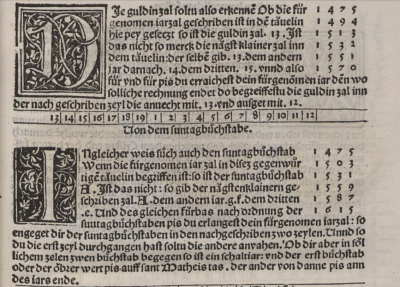 DIe guldin zal soltu also erkennē Ob die für 1 4 7 5
genomen iarzal geschriben ist in dē tåuelin 1 4 9 4
hie pey gesetzt so ist die guldin zal. 13. Ist 1 5 1 3
das nicht so merck die någst klainer zal inn 1 5 3 2
dem tåuelin: der selbē gib. 13. dem andern 1 5 5 1
iar darnach. 14. dem dritten. 15. vnnd also 1 5 7 0
für vnd für pis du erraichest dein fürgenomē iar dēn wo
solliche rechnung endet do begeiffestu die guldin zal inn
der nach geschriben zeyl die anuecht mit. 13. vnd außget mit. 12.
13 14 15 16 17 18 19 1 2 3 4 5 6 7 8 9 10 11 12
Von dem suntagbůchstabe.
INgleicher weis such auch den suntagbůchstab 1 4 7 5
Wenn die fürgenomen iar zal in disez gegenwür 1 5 0 3
tigē tåuelin begriffen ist: so ist der suntagbůchstab 1 5 3 1
A. Ist das nicht: so gib der någstenklainern ge- 1 5 5 9
schriben zal. A. dem andern iar. g. f. dem dritten 1 5 8 7
.e. Vnd des gleichen fürbas nach ordnung der 1 6 1 5
suntagbůchstaben pis du erlangest dein fürgenomen iarzal: so
engeget dir der suntagbůchstaben in den nachgeschriben zwo zeylen. Vnnd so
du die erst zeyl durchgangen hast soltu die andere anvahen. Ob dir aber in söl
lichem zelen zwen bůchstab begegen so ist ein schaltiar: vnd der erst bůchstab
oder der öbrer wert pis auff sant Matheis tag. der ander von danne pis ann
des iars ende.